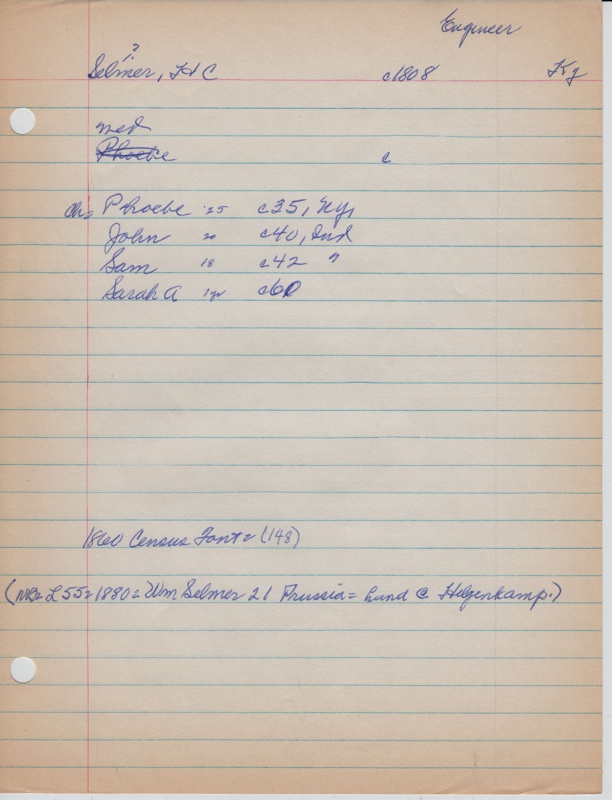 Engineer
?
Selmer, H C c1808 Ky
med
Phoebe c
Ch= Phoebe 25 c35, Ny,
John 20 c40, Ind
Sam 18 c42 "
Sarah A 1yr c60
1860 Census Font= (148)
(NB= L55=1880= Wm Selmer 21 Prussia= hand @ Hilgenkamp.)